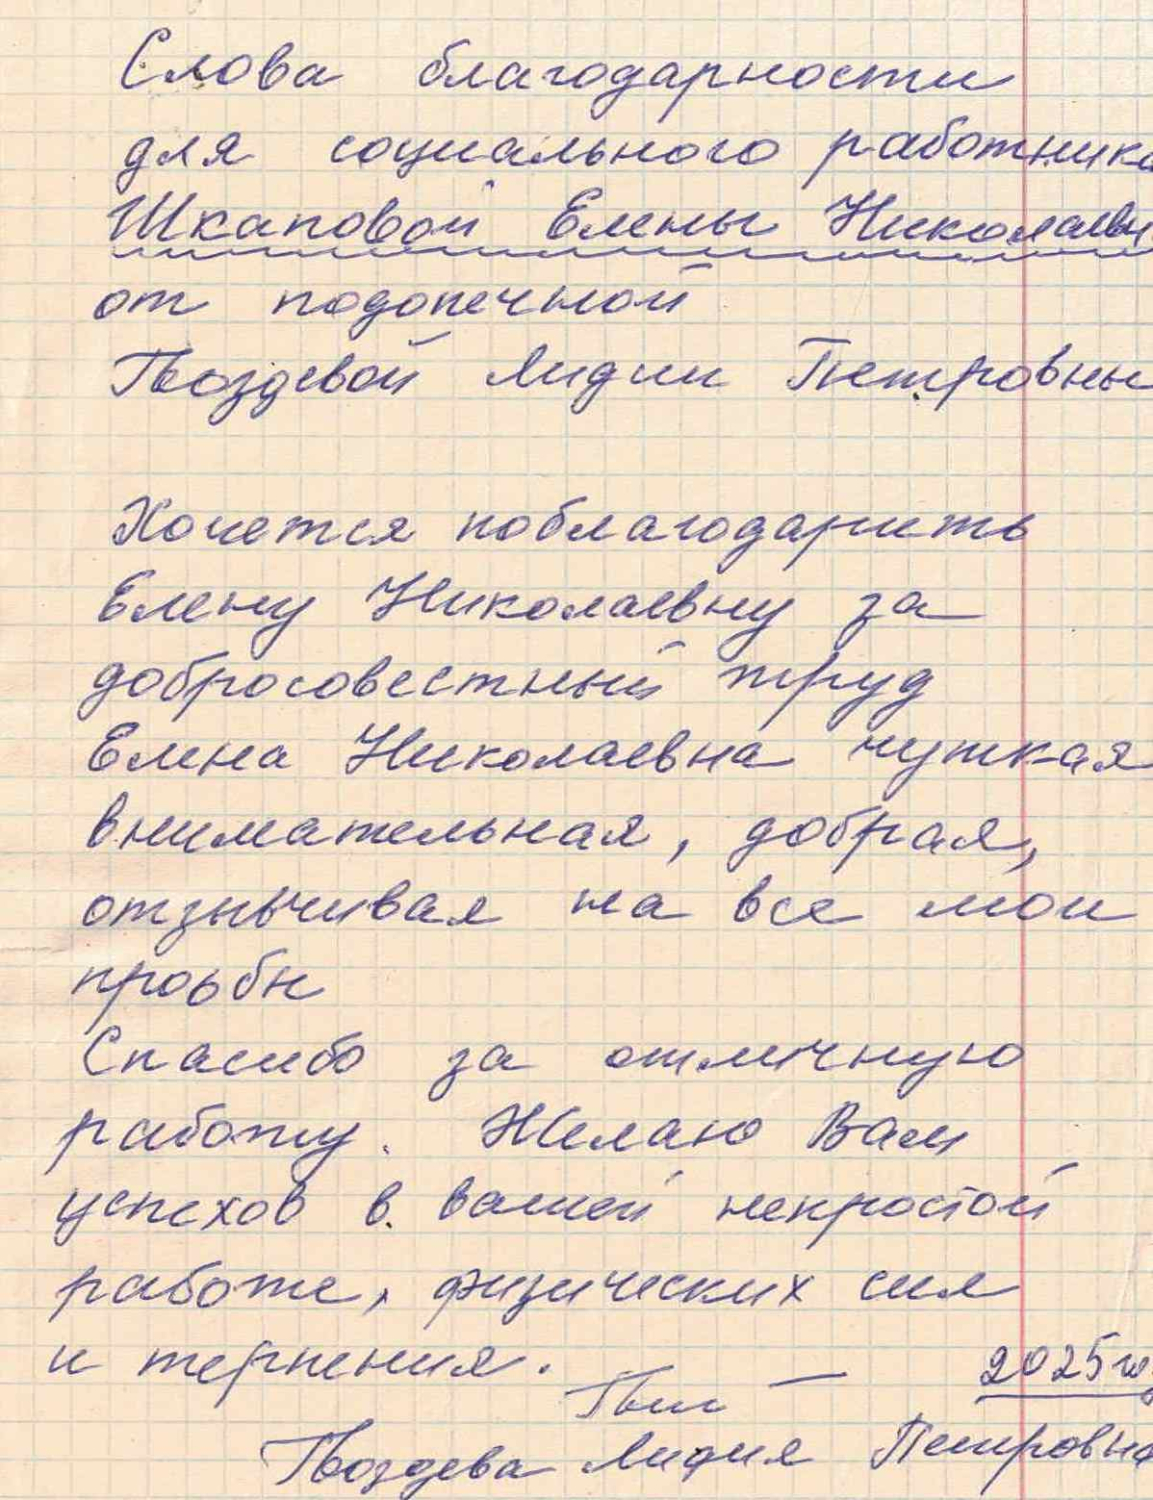 Слова благодарности
для социального работника
Шкаповой Елены Николаевны
от подопечной
Гвоздевой Лидии Петровны
Хочется поблагодарить
Елену Николаевну за
добросовестный труд
Елена Николаевна чуткая
внимательная, добрая,
отзывчивая на все мои
прозьбы
Спасибо за отличную
работу. Желаю Вам
успехов в вашей непростой
работе, физических сил
и терпения.
2025 год
Гвоздева Лидия Петровна